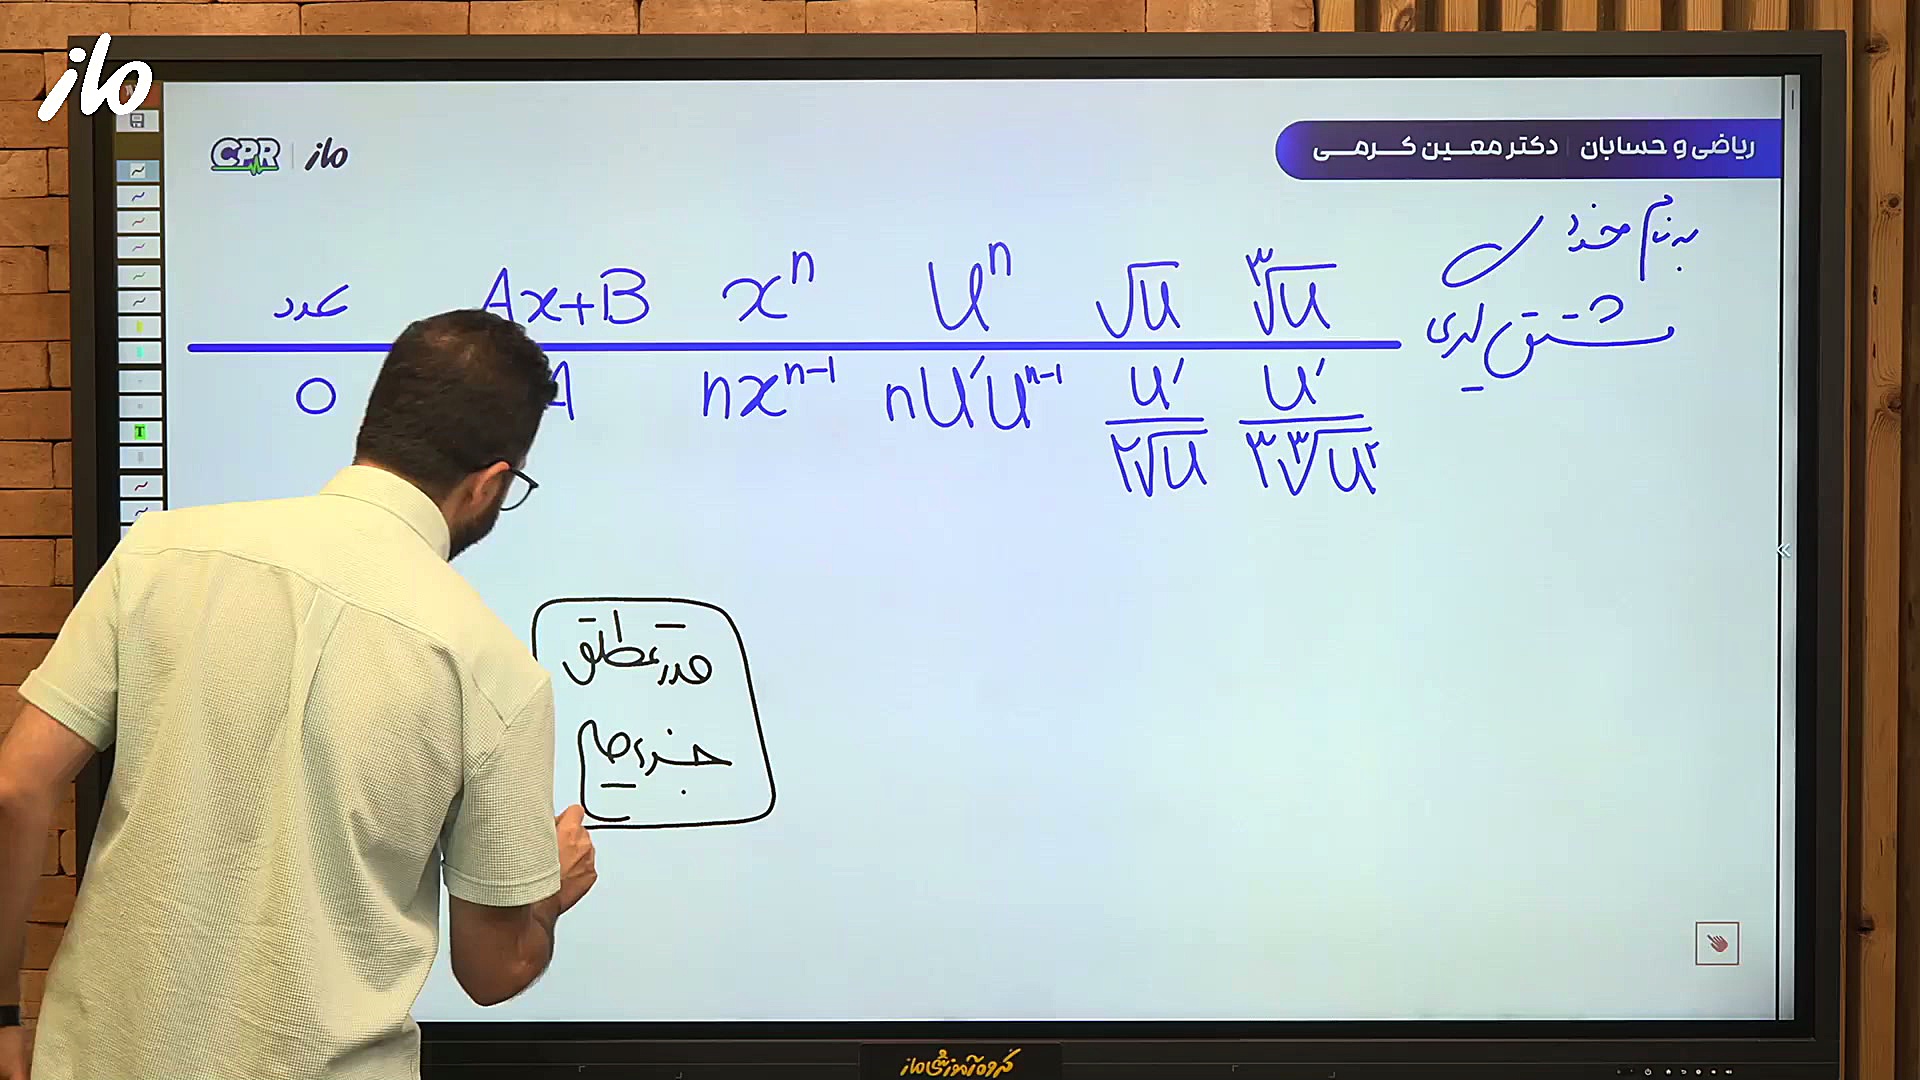 ماز
CPR | ماز
ریاضی و حسابان | دکتر معین کرمی
به نام خدا
مشتق گیری
عدد Ax+B xⁿ Uⁿ √U ∛U
0 A nxⁿ⁻¹ nU′Uⁿ⁻¹ U′/۲√U U′/۳∛U²
قدرمطلق
جزء صحیح
T
گروه آموزشی ماز